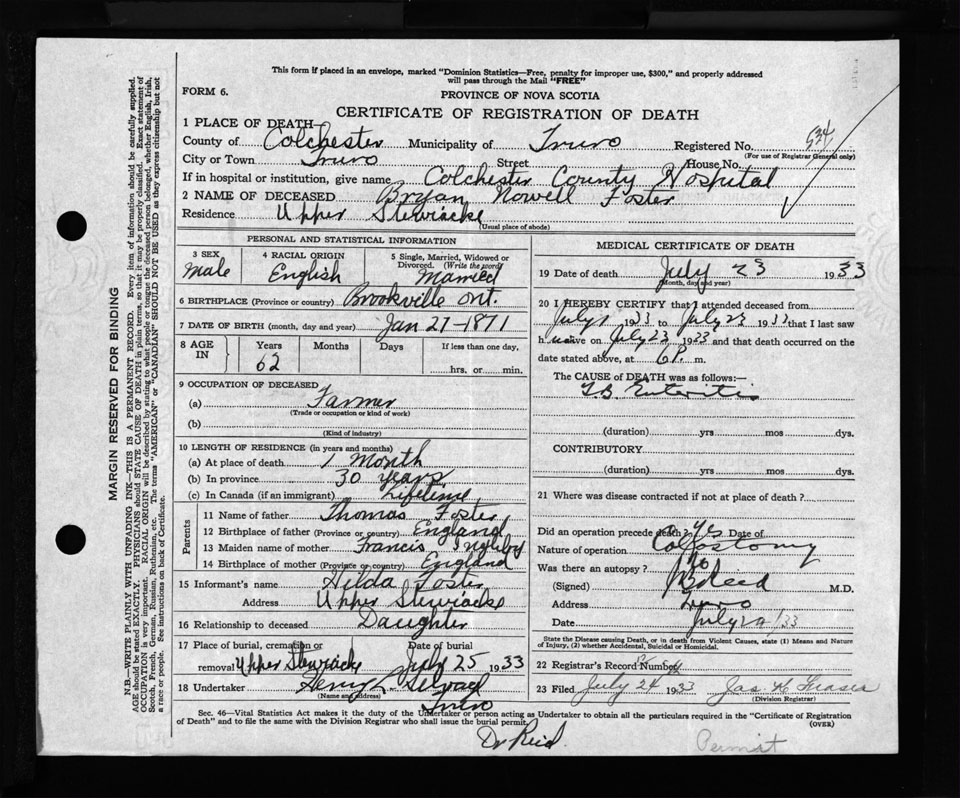 This form if placed in an envelope, marked "Dominion Statistics—Free, penalty for improper use, $300," and properly addressed
will pass through the Mail "FREE"
FORM 6.
PROVINCE OF NOVA SCOTIA
CERTIFICATE OF REGISTRATION OF DEATH
1 PLACE OF DEATH
County of Colchester Municipality of Truro Registered No. 534
(For use of Registrar General only)
City or Town Truro Street House No.
If in hospital or institution, give name Colchester County Hospital
2 NAME OF DECEASED Bryan Nowell Foster
Residence Upper Stewiacke
(Usual place of abode)
PERSONAL AND STATISTICAL INFORMATION
3 SEX
Male
4 RACIAL ORIGIN
English
5 Single, Married, Widowed or
Divorced. (Write the word)
Married
6 BIRTHPLACE (Province or country) Brookville Ont.
7 DATE OF BIRTH (month, day and year) Jan 27-1871
8 AGE
IN
Years Months Days If less than one day,
62
hrs. or min.
9 OCCUPATION OF DECEASED
(a) Farmer
(Trade or occupation or kind of work)
(b)
(Kind of industry)
10 LENGTH OF RESIDENCE (in years and months)
(a) At place of death 1 Month
(b) In province 30 years
(c) In Canada (if an immigrant) Lifetime
Parents
11 Name of father Thomas Foster
12 Birthplace of father (Province or country) England
13 Maiden name of mother Francis
14 Birthplace of mother (Province or country) England
15 Informant's name Hilda Foster
Address Upper Stewiacke
16 Relationship to deceased Daughter
17 Place of burial, cremation or
removal Upper Stewiacke
Date of burial
July 25 1933
18 Undertaker Henry L.
(Name and address)
Truro
MEDICAL CERTIFICATE OF DEATH
19 Date of death July 23 1933
(Month, day and year)
20 I HEREBY CERTIFY that I attended deceased from
July 1 1933 to July 23 1933 that I last saw
h alive on July 23 1933 and that death occurred on the
date stated above, at 6 P. m.
The CAUSE OF DEATH was as follows:—
T.B. Enteritis
(duration) yrs mos dys.
CONTRIBUTORY
(duration) yrs mos dys.
21 Where was disease contracted if not at place of death?
Did an operation precede death? Yes Date of
Nature of operation Colostomy
Was there an autopsy? No
(Signed) Reid M.D.
Address Truro
Date July 33
State the Disease causing Death, or in death from Violent Causes, state (1) Means and Nature
of Injury, (2) whether Accidental, Suicidal or Homicidal.
22 Registrar's Record Number
23 Filed July 24 1933 Jas H Fraser
(Division Registrar)
Sec. 46—Vital Statistics Act makes it the duty of the Undertaker or person acting as Undertaker to obtain all the particulars required in the "Certificate of Registration
of Death" and to file the same with the Division Registrar who shall issue the burial permit.
(OVER)
Dr Reid
Permit
MARGIN RESERVED FOR BINDING
N.B.—WRITE PLAINLY WITH UNFADING INK—THIS IS A PERMANENT RECORD. Every item of information should be carefully supplied.
AGE should be stated EXACTLY. PHYSICIANS should STATE CAUSE OF DEATH in plain terms, so that it may be properly classified. Exact statement of
OCCUPATION is very important. RACIAL ORIGIN will be described by stating to what people or tongue the deceased person belonged, whether English, Irish,
Scotch, French, German, Russian, Ruthenian, etc. The terms "AMERICAN" or "CANADIAN" SHOULD NOT BE USED as they express citizenship but not
a race or people. See instructions on back of Certificate.